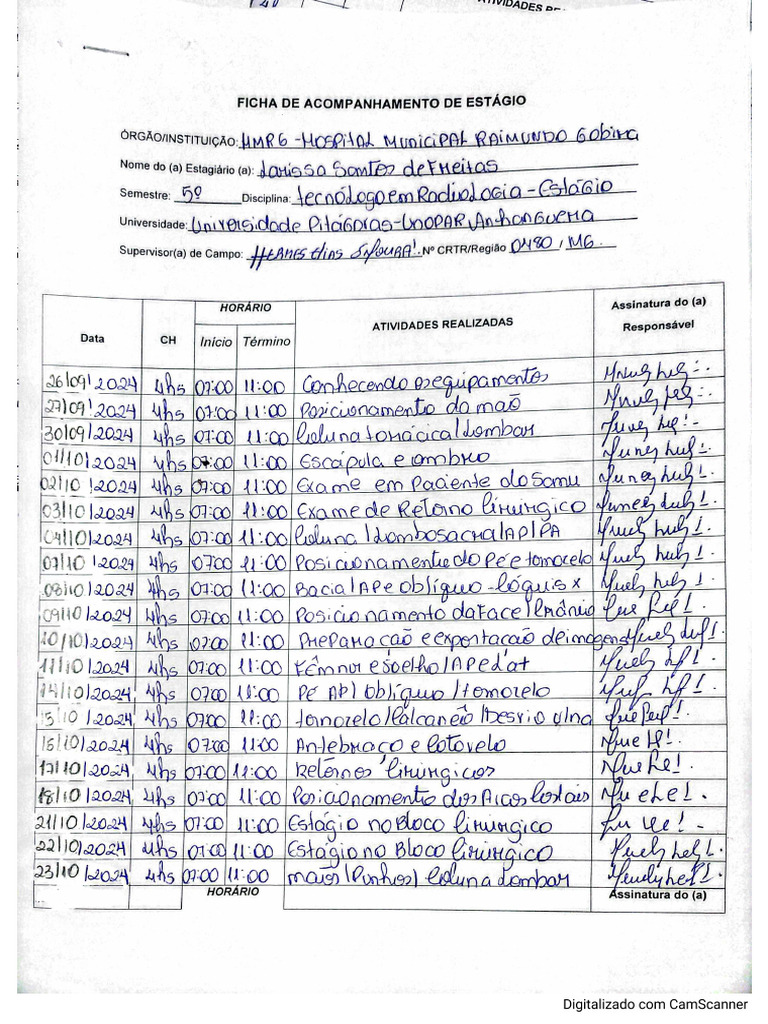 FICHA DE ACOMPANHAMENTO DE ESTÁGIO
ÓRGÃO/INSTITUIÇÃO: HMRG - HOSPITAL MUNICIPAL RAIMUNDO GOBIRA
Nome do (a) Estagiário (a): Larissa Santos de Freitas
Semestre: 5º Disciplina: Tecnólogo em Radiologia - Estágio
Universidade: Universidade Pitágoras - UNOPAR Anhanguera
Supervisor(a) de Campo: Hermes Elias Nº CRTR/Região 0480, MG.
Data CH HORÁRIO Início Término ATIVIDADES REALIZADAS Assinatura do (a) Responsável
26/09/2024 4hs 07:00 11:00 Conhecendo os equipamentos
27/09/2024 4hs 07:00 11:00 Posicionamento da maõ
30/09/2024 4hs 07:00 11:00 Coluna torácica/lombar
01/10/2024 4hs 07:00 11:00 Escápula e ombro
02/10/2024 4hs 07:00 11:00 Exame em Paciente do Samu
03/10/2024 4hs 07:00 11:00 Exame de Retorno Cirurgico
04/10/2024 4hs 07:00 11:00 Coluna/lombosacra/AP/PA
07/10/2024 4hs 07:00 11:00 Posicionamento do Pé e tornozelo
08/10/2024 4hs 07:00 11:00 Bacia/AP e oblíquo
09/10/2024 4hs 07:00 11:00 Posicionamento da Face/Crânio
10/10/2024 4hs 07:00 11:00 Preparação e exportação de imagens
11/10/2024 4hs 07:00 11:00 Fêmur e joelho/AP
14/10/2024 4hs 07:00 11:00 Pé AP/oblíquo/tornozelo
15/10/2024 4hs 07:00 11:00 tornozelo/Calcaneio/Desvio
15/10/2024 4hs 07:00 11:00 Antebraço e Cotovelo
17/10/2024 4hs 07:00 11:00 Retornos Cirurgicos
18/10/2024 4hs 07:00 11:00 Posicionamento dos Arcos Costais
21/10/2024 4hs 07:00 11:00 Estágio no Bloco Cirurgico
22/10/2024 4hs 07:00 11:00 Estágio no Bloco Cirurgico
23/10/2024 4hs 07:00 11:00 maõs/Punhos/Coluna Lombar
HORÁRIO Assinatura do (a)
Digitalizado com CamScanner